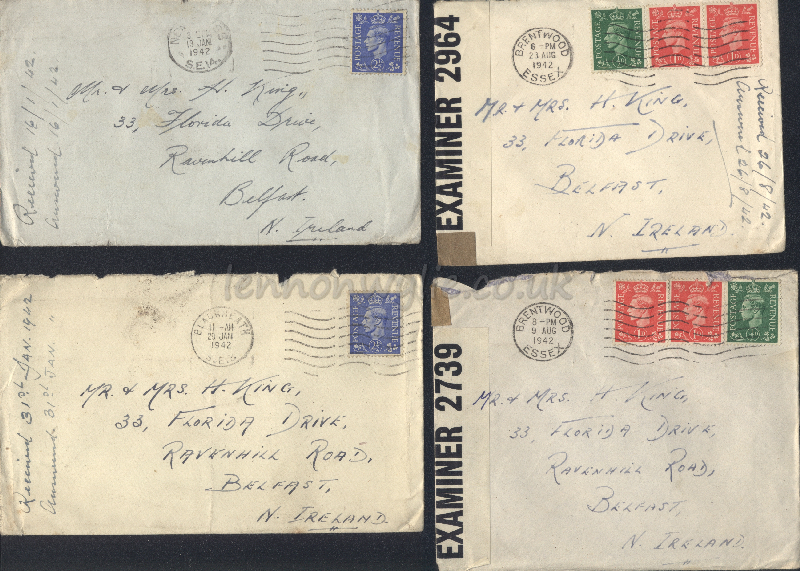 13 JAN
1942
S.E.14.
POSTAGE
REVENUE
Mr. & Mrs. H. King,
33, Florida Drive,
Ravenhill Road,
Belfast.
N. Ireland
Received 16/1/42.
Answered 16/1/42
EXAMINER 2964
BRENTWOOD
6 - PM
23 AUG
1942
ESSEX
POSTAGE
REVENUE
POSTAGE
REVENUE
POSTAGE
REVENUE
MR. & MRS. H. KING,
33, FLORIDA DRIVE,
BELFAST,
N. IRELAND.
Received 26/8/42.
Answered 26/8/42
lennonwylie.co.uk
BLACKHEATH
11 - AM
29 JAN
1942
S.E.3.
POSTAGE
REVENUE
MR. & MRS. H. KING,
33, FLORIDA DRIVE,
RAVENHILL ROAD,
BELFAST,
N. IRELAND.
Received 31st JAN. 1942
Answered 31st JAN. "
EXAMINER 2739
BRENTWOOD
8 - PM
9 AUG
1942
ESSEX
POSTAGE
REVENUE
POSTAGE
REVENUE
POSTAGE
REVENUE
MR. & MRS. H. KING,
33, FLORIDA DRIVE,
RAVENHILL ROAD,
BELFAST,
N. IRELAND.